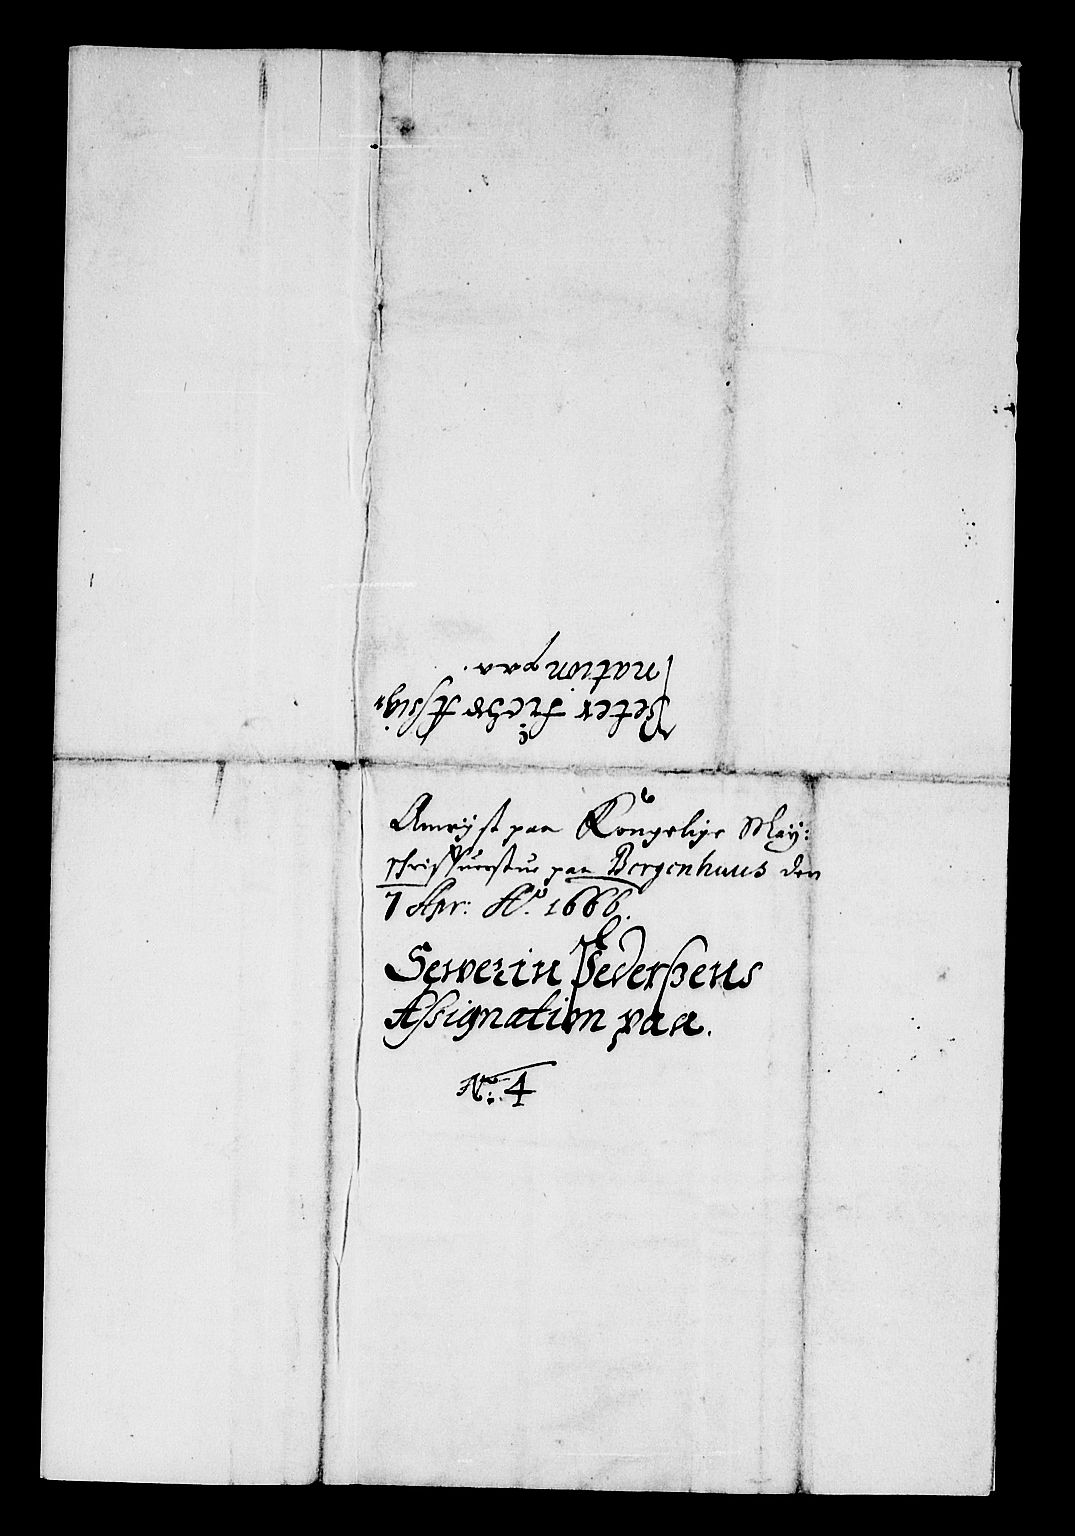 Peter Fichs Assig-
nation paa.
Anvijst paa Kongelige May:
schriffuerstue paa Bergenhuus den
7 Apr: Aº. 1666.
Sewerin Pederßens
Assignation paa.
No: 4